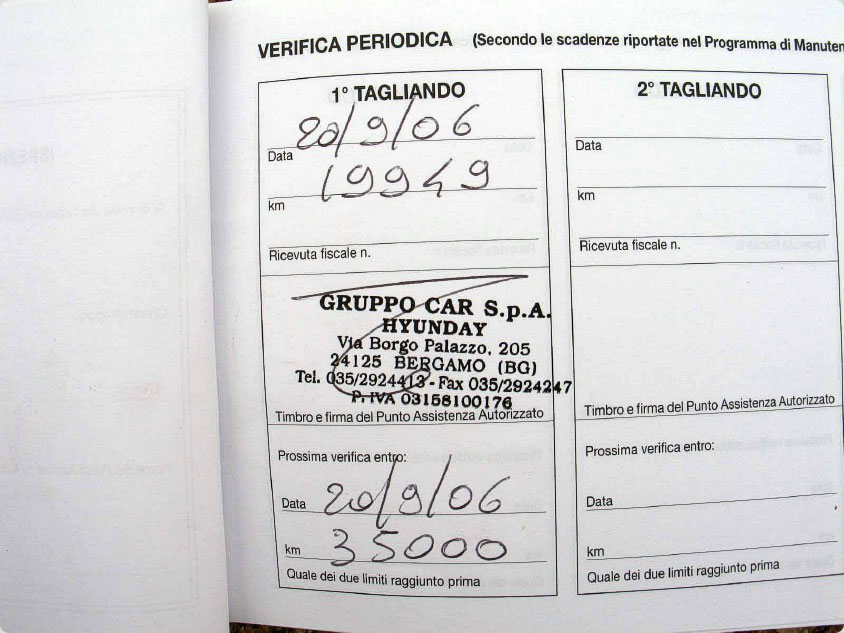 VERIFICA PERIODICA (Secondo le scadenze riportate nel Programma di Manuten
1° TAGLIANDO
20/9/06
Data
19949
km
Ricevuta fiscale n.
GRUPPO CAR S.p.A.
HYUNDAY
Via Borgo Palazzo, 205
24125 BERGAMO (BG)
Tel. 035/2924413 - Fax 035/2924247
P. IVA 03158100176
Timbro e firma del Punto Assistenza Autorizzato
Prossima verifica entro:
Data 20/9/06
km 35000
Quale dei due limiti raggiunto prima
2° TAGLIANDO
Data
km
Ricevuta fiscale n.
Timbro e firma del Punto Assistenza Autorizzato
Prossima verifica entro:
Data
km
Quale dei due limiti raggiunto prima